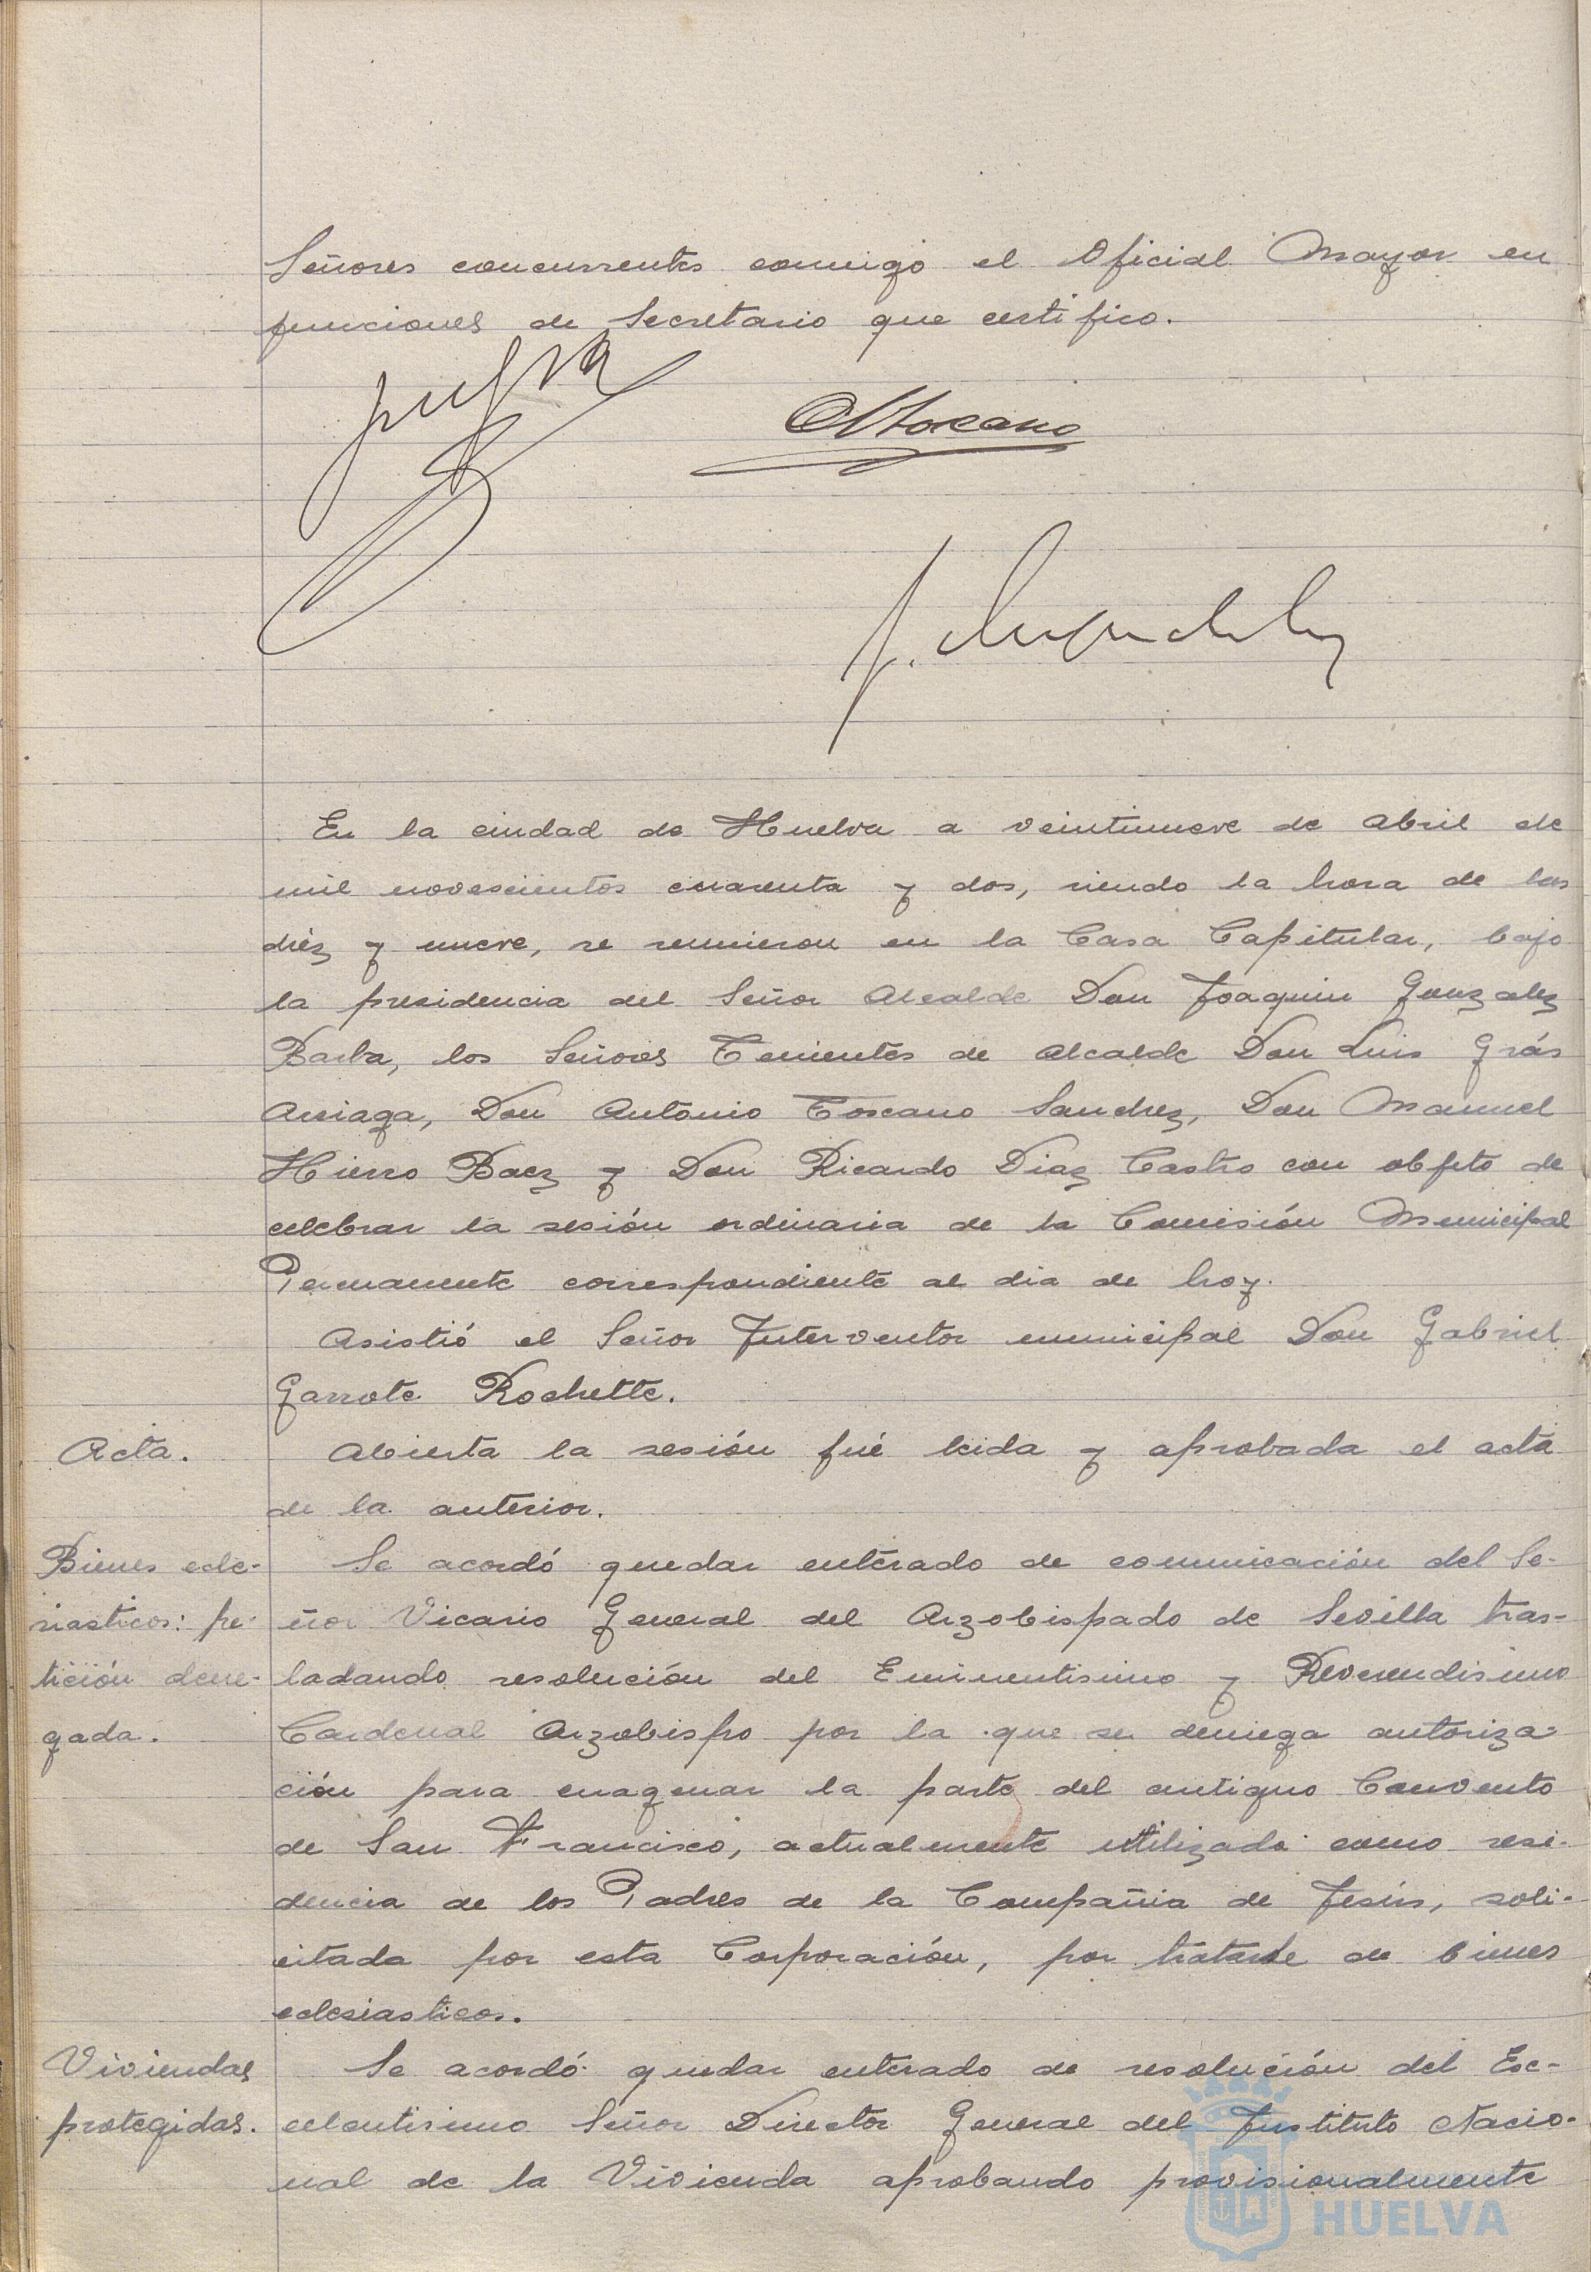 Señores concurrentes conmigo el Oficial Mayor en
funciones de Secretario que certifico.
A Toscano
En la ciudad de Huelva a veintinueve de Abril de
mil novescientos cuarenta y dos, siendo la hora de las
diéz y nueve, se reunieron en la Casa Capitular, bajo
la presidencia del Señor Alcalde Don Joaquin Gonzalez
Barba, los Señores Tenientes de Alcalde Don Luis Grás
Arriaga, Don Antonio Toscano Sanchez, Don Manuel
Hierro Baez y Don Ricardo Diaz Castro con objeto de
celebrar la sesión ordinaria de la Comisión Municipal
Permanente correspondiente al dia de hoy.
Asistió el Señor Interventor municipal Don Gabriel
Garrote Rochette.
Acta.
Abierta la sesión fué leida y aprobada el acta
de la anterior.
Bienes ecle-
siasticos: pe-
tición dene-
gada.
Se acordó quedar enterado de comunicación del Se-
ñor Vicario General del Arzobispado de Sevilla tras-
ladando resolución del Eminentisimo y Reverendisimo
Cardenal Arzobispo por la que se deniega autoriza-
ción para enagenar la parte del antiguo Convento
de San Francisco, actualmente utilizada como resi-
dencia de los Padres de la Compañia de Jesús, soli-
citada por esta Corporación, por tratarse de bienes
eclesiasticos.
Viviendas
protegidas.
Se acordó quedar enterado de resolución del Exc-
celentisimo Señor Director General del Instituto Nacio-
nal de la Vivienda aprobando provisionalmente
HUELVA